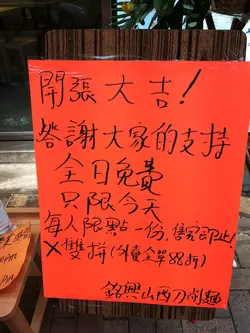 開張大吉!
答謝大家的支持
全日免費
只限今天
每人限點一份,售完即止!
X雙拼(外賣全單88折)
銘興山西刀削麵